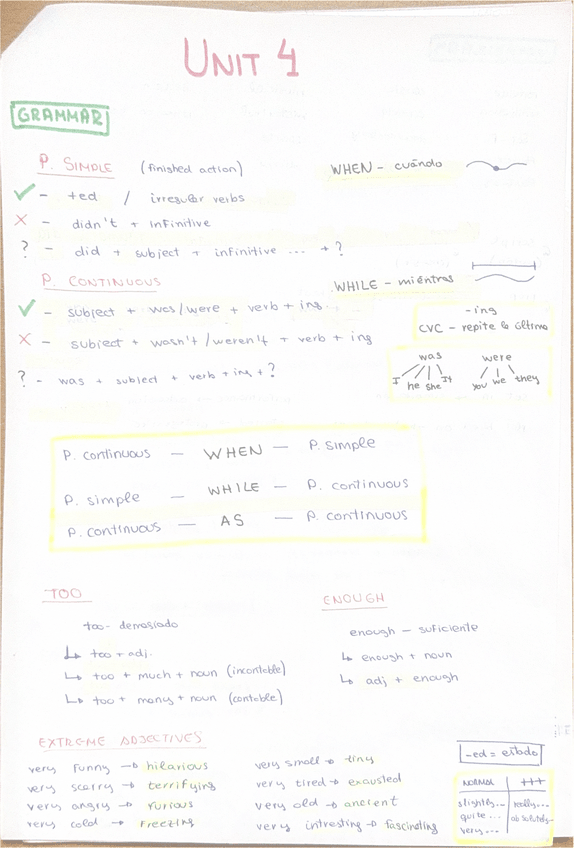 UNIT 4
GRAMMAR
P. SIMPLE (finished action)
WHEN - cuándo
✓ - +ed / irregular verbs
X - didn't + infinitive
? - did + subject + infinitive ... + ?
P. CONTINUOUS
WHILE - miéntras
✓ - subject + was/were + verb + ing
X - subject + wasn't/weren't + verb + ing
? - was + subject + verb + ing + ?
-ing
CVC - repite la última
was were
I he she It you we they
P. continuous — WHEN — P. simple
P. simple — WHILE — P. continuous
P. continuous — AS — P. continuous
TOO
too - demasiado
↳ too + adj.
↳ too + much + noun (incontable)
↳ too + many + noun (contable)
ENOUGH
enough - suficiente
↳ enough + noun
↳ adj + enough
EXTREME ADJECTIVES
very funny → hilarious
very scarry → terrifying
very angry → furious
very cold → freezing
very small → tiny
very tired → exausted
very old → ancient
very intresting → fascinating
-ed = estado
NORMAL +++
slightly... really...
quite... absolutely...
very...